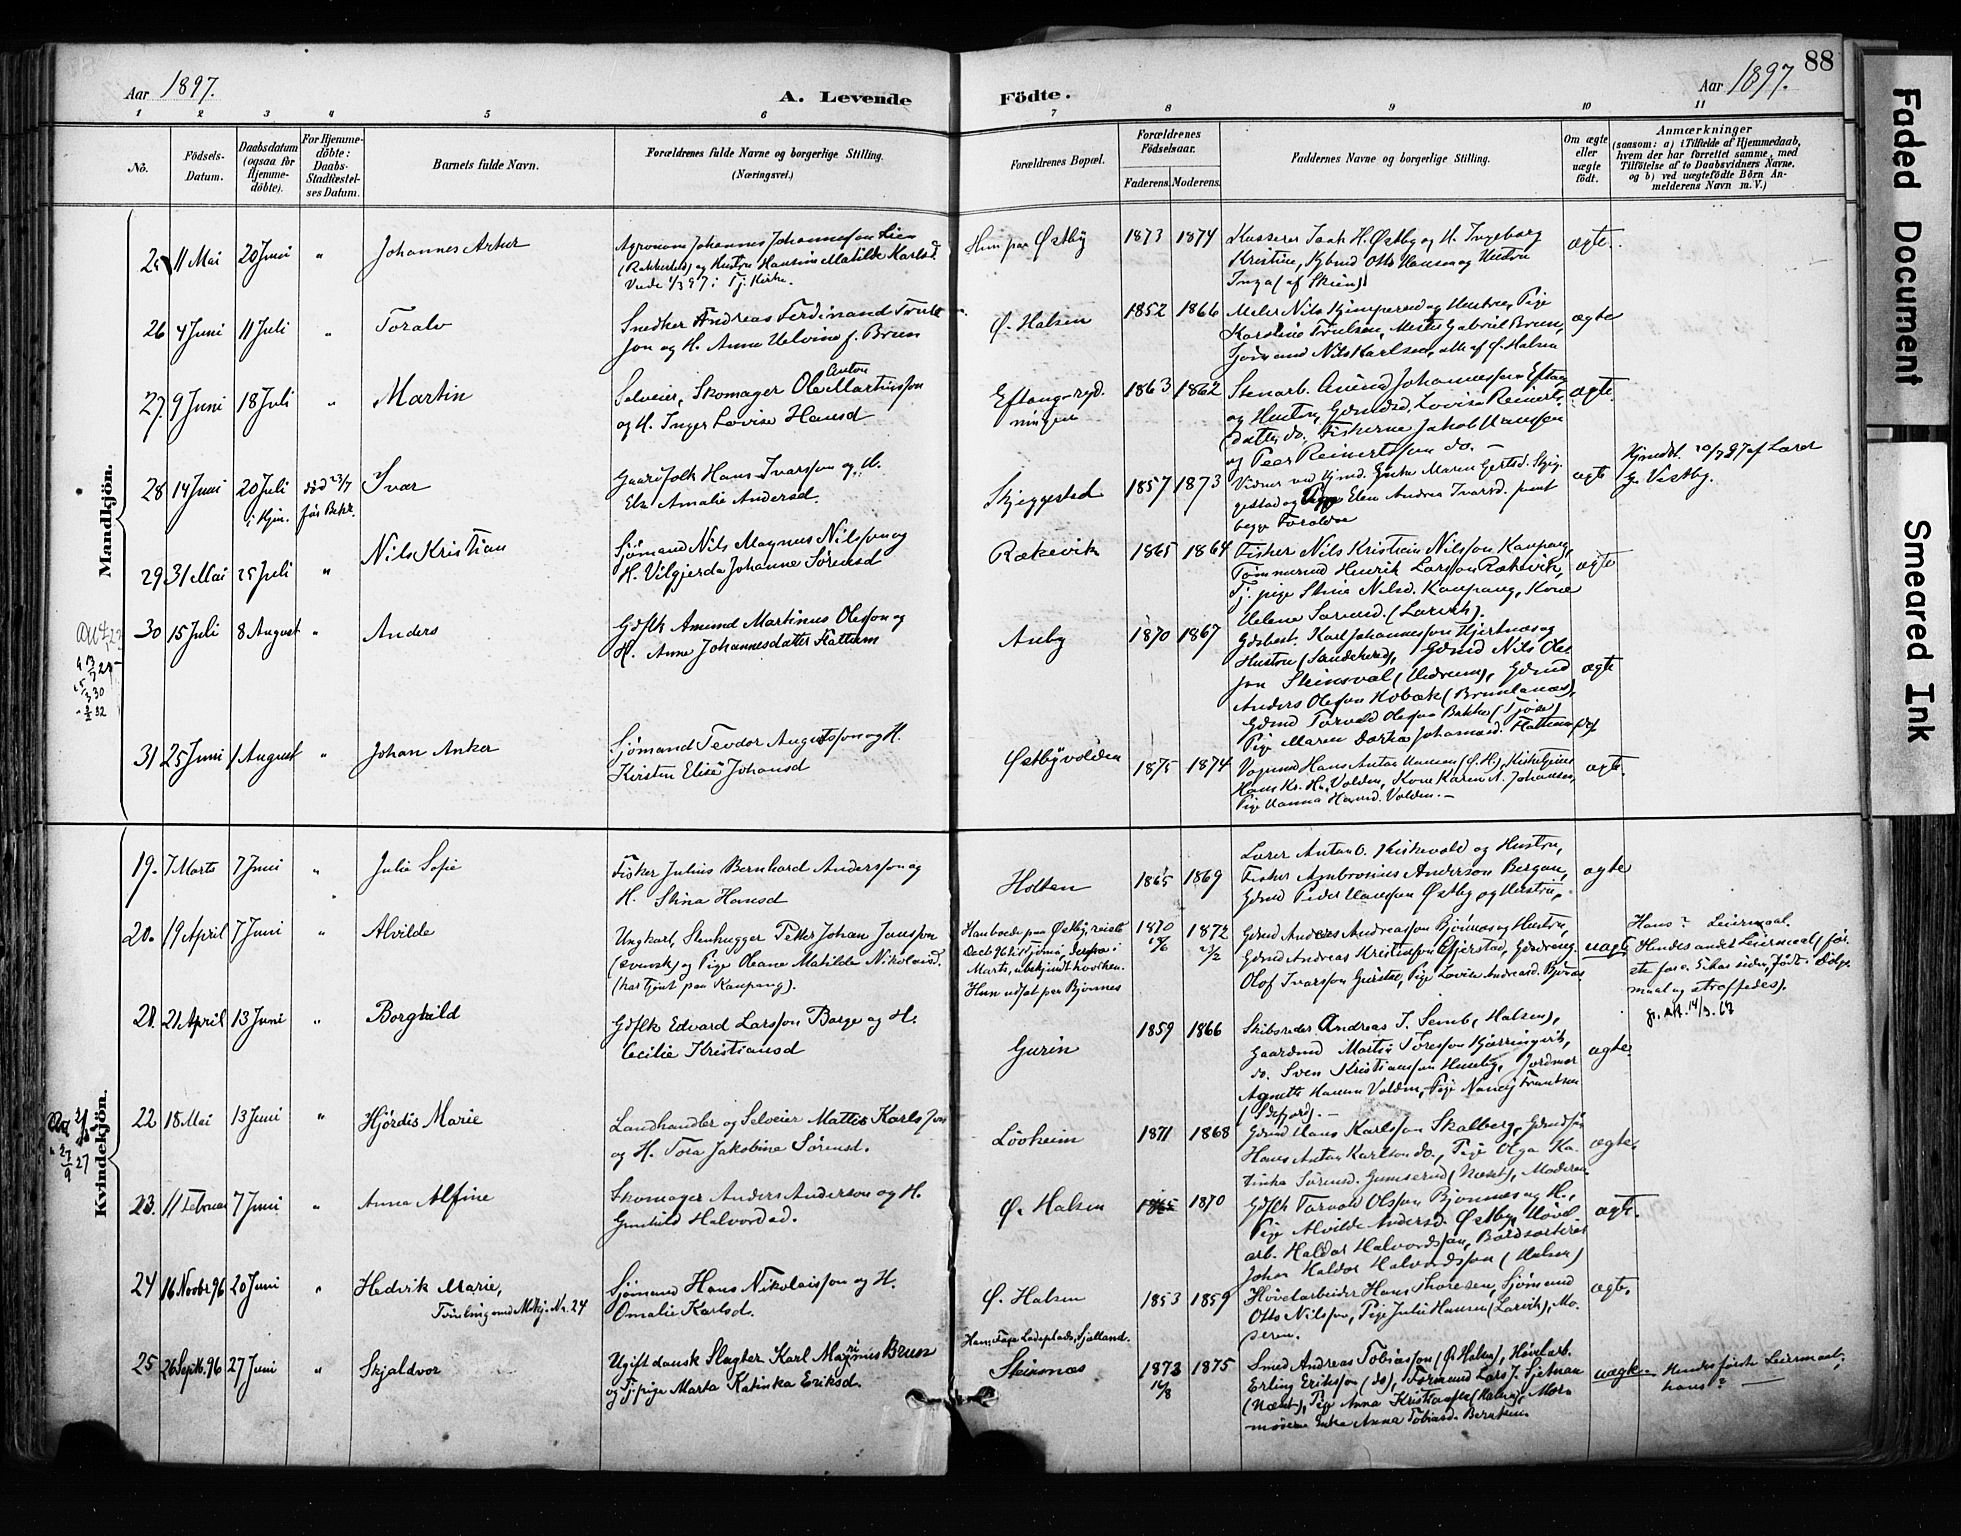 88
Aar 1897.
A. Levende
Födte.
Aar 1897.
1 2 3 4 5 6 7 8 9 10 11
No.
Födsels-
Datum.
Daabsdatum
(ogsaa för
Hjemme-
döbte).
For Hjemme-
döbte:
Daabs-
Stadfæstel-
ses Datum.
Barnets fulde Navn.
Forældrenes fulde Navne og borgerlige Stilling.
(Næringsvei.)
Forældrenes Bopæl.
Forældrenes
Födselsaar.
Faderens.
Moderens.
Faddernes Navne og borgerlige Stilling.
Om ægte
eller
uægte
födt.
Anmærkninger
(saasom: a) i Tilfælde af Hjemmedaab,
hvem der har forrettet samme, med
Tilföielse af to Daabsvidners Navne,
og b) ved uægtefödte Börn An-
melderens Navn m. V.)
Mandkjön.
25 11 Mai 20 Juni " Johannes Artur
Agronom Johannes Johannesson Lien
og Hustru Hansine Matilde Karlsd.
Viede 1/3 97 i Tj. Kirke.
Hun paa Østby 1873 1874
Kasserer Isak H. Østby og H. Ingeborg
Kristine, Otto Hansen og Hustru
Inga (af Skien)
ægte.
26 4 Juni 11 Juli " Toralv
Snedker Andreas Ferdinand
son og H. Anna Helvine f. Brun
Ø. Halsen 1852 1866
Maler Nils og Hustru, Pige
Karoline Trulsen, Gabriel Brun,
Sjømand Nils Karlsen, alle af Ø. Halsen
ægte
27. 9 Juni 18 Juli " Martin
Selveier, Skomager Ole Anton Martinsson
og H. Inger Lovise Hansd
Eftang-ryd-
ningen 1863 1862
Stenarb. Johannesson Eftang
og Hustru, Gdmdsd. Lovise Reinerts-
datter do. Fiskerne Jakob Hansson
og Peer Reinertsson do. –
ægte.
28 14 Juni 20 Juli i Hjm. død 23/7 før Bekr. Ivar
Gaardfolk Hans Ivarsson og H.
Else Amalie Andersd.
Skjeggestad 1857 1873
Vidner ved Hjmd. Enke Maren Gertsd. Skjeg-
gestad og Pige Elen Andrea Ivarsd. samt
begge Forældre
ægte
Hjmdt. 20/7 97 af Lærer
G. Vestby.
29 31 Mai 25 Juli " Nils Kristian
Sjømand Nils Magnus Nilsson og
H. Vilgjerda Johanne Sørensd
Rækevik 1865 1864
Fisker Nils Kristian Nilsson Kaupang,
Tømmermd Henrik Larsson Rækevik,
Tj. pige Stine Nilsd. Kaupang, Kone
Helene Sørensd. (Larvik).
ægte
30 15 Juli 8 August " Anders
Gdflk Amund Martinus Olesson og
H. Anne Johannesdatter Hattum
Auby 1870 1867
Gdbest. Karl Johannesson Hjertnæs og
Hustru (Sandeherred), Gdmd Nils Ole-
son Steinsval (Hedrum), Gdmd
Anders Olesson Hobæk (Brunlanæs),
Gdmd Torvald Olesson Bakke (Tjøse),
Pige Maren Dortea Johannesd. Hattum
ægte
31 25 Juni 1 August " Johan Anker
Sjømand Teodor Augustsson og H.
Kirstin Elise Johansd
Østbyvolden 1875 1874
Vognmd Hans Anton Hansen (Ø.H.),
Hans Kr. H. Volden, Kone Karen A. Johansen,
Pige Hanna Hansd. Volden. –
ægte.
Kvindekjön.
19. 7 Marts 7 Juni " Julie Sofie
Fisker Julius Bernhard Andersson og
H. Stina Hansd
Holten 1865 1869
Lærer Anton O. Kirkevold og Hustru,
Fisker Ambrosius Anderson Bergan,
Gdmd Peder Hansson Østby og Hustru.
ægte
20. 19 April 7 Juni " Alvilde
Ungkarl, Stenhugger Petter Johan Jonsson
(svensk) og Pige Oleane Matilde Nikolaisd.
(har tjent paa Kaupang).
Han boede paa Østby, reiste
Decb 96 til Tjømø, derfra i
Marts, ubekjendt hvorhen.
Hun udføt paa Bjønnes
1870 1872
Gdmd Anders Andreasson Bjønnes og Hustru,
Gdmd Andreas Kristensson Gjerstad, Gdmdreng
Olof Ivarsson Gurin, Pige Lovise Andreasd. Bjønnes
uægte
Hans? Leiermaal.
Hendes andet Leiermaal (før-
ste for c. 5 Aar siden, født i Dølgs-
maal og straffedes).
21. 21 April 13 Juni " Borghild
Gdflk Edvard Larsson Barge og H.
Cecilie Kristiansd
Gurin 1859 1866
Skibsreder Andreas J. Semb, (Halsen),
Gaardmd Martin Toresson Kjerringvik,
do. Sven Kristiansson Huseby, Jordmor
Agnette Hansen Volden, Pige Nancy Frantsen
(Sdefjord). –
ægte.
22 18 Mai 13 Juni " Hjørdis Marie
Landhandler og Selveier Mattis Karlsson
og H. Tora Jakobine Sørensd.
Løvheim 1871 1868
Gdmd Hans Karlsson Skalberg, Gdmdsøn
Hans Anton Karlson do., Pige Olga Ka-
tinka Sørensd. Gumserød (Næset), Moderen
ægte.
23. 11 Februar 7 Juni " Anna Alfine
Skomager Anders Anderson og H.
Gunhild Halvordsd.
Ø. Halsen 1865 1870
Gdflk Torvald Olsson Bjønnes og H.,
Pige Alvilde Andersd. Østby, Høvl
arb. Haldor Halvordsson, Bordsorterer
Johan Haldor Halvordsson (Halsen)
ægte.
24 16 Novbr 96 20 Juni " Hedvik Marie,
Tvilling med Mkj. Nr. 24
Sjømand Hans Nikolaisson og H.
Omalie Karlsd.
Ø. Halsen 1853 1859
Høvelarbeider Hans Thoresen, Sjømand
Otto Nilsson, Pige Julie Hansen (Larvik), Mo-
deren.
ægte.
25 26 Septb. 96 27 Juni " Skjaldvor
Ugift dansk Slagter Karl Marinius Brun
og Tj. pige Marta Katinka Eriksd.
Han: Faxe Ladeplads, Sjælland.
Steinsnæs 1873 16/8 1875
Smed Andreas Tobiasson (Ø. Halsen), Høvelarb.
Erling Eriksson (do), Formand Lars J. Sjetnan
(Næset), Pige Anna Kristiansen (Halsen), Mor-
moren Enke Anna Tobiasd. Berntsen.
uægte.
Hendes første Leiermaal;
hans?
Faded Document
Smeared Ink